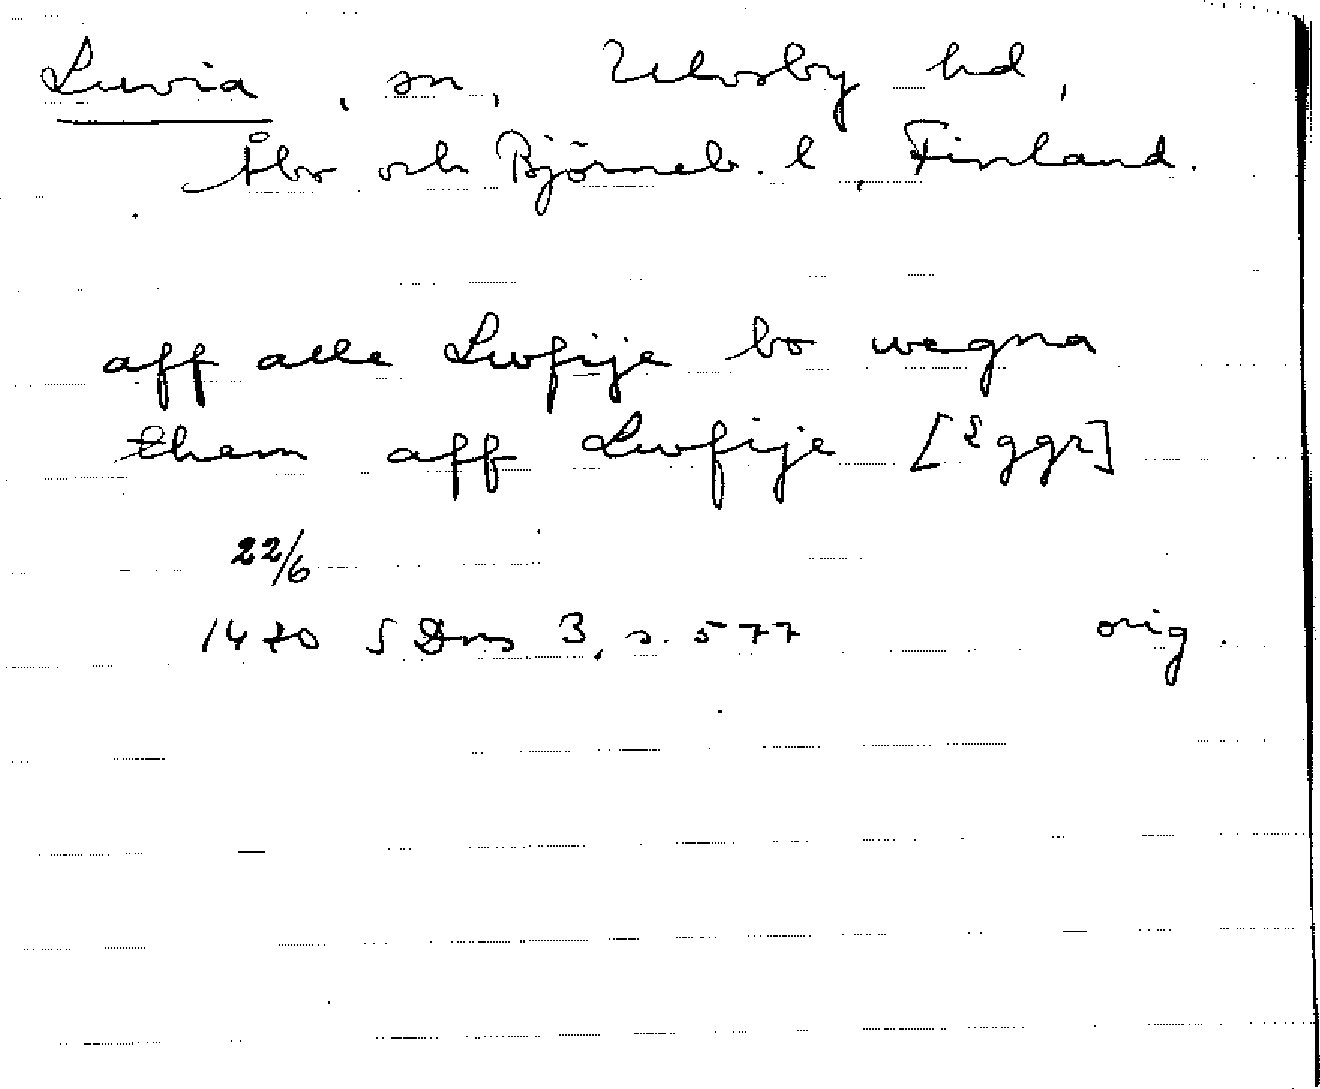 Luvia, sn, Ulvsby hd,
Åbo och Björneb. l, Finland.
aff alle Lwfije bo wegna
them aff Lwfije [2 ggr]
22/6
1470 SDns 3, s. 577 orig.